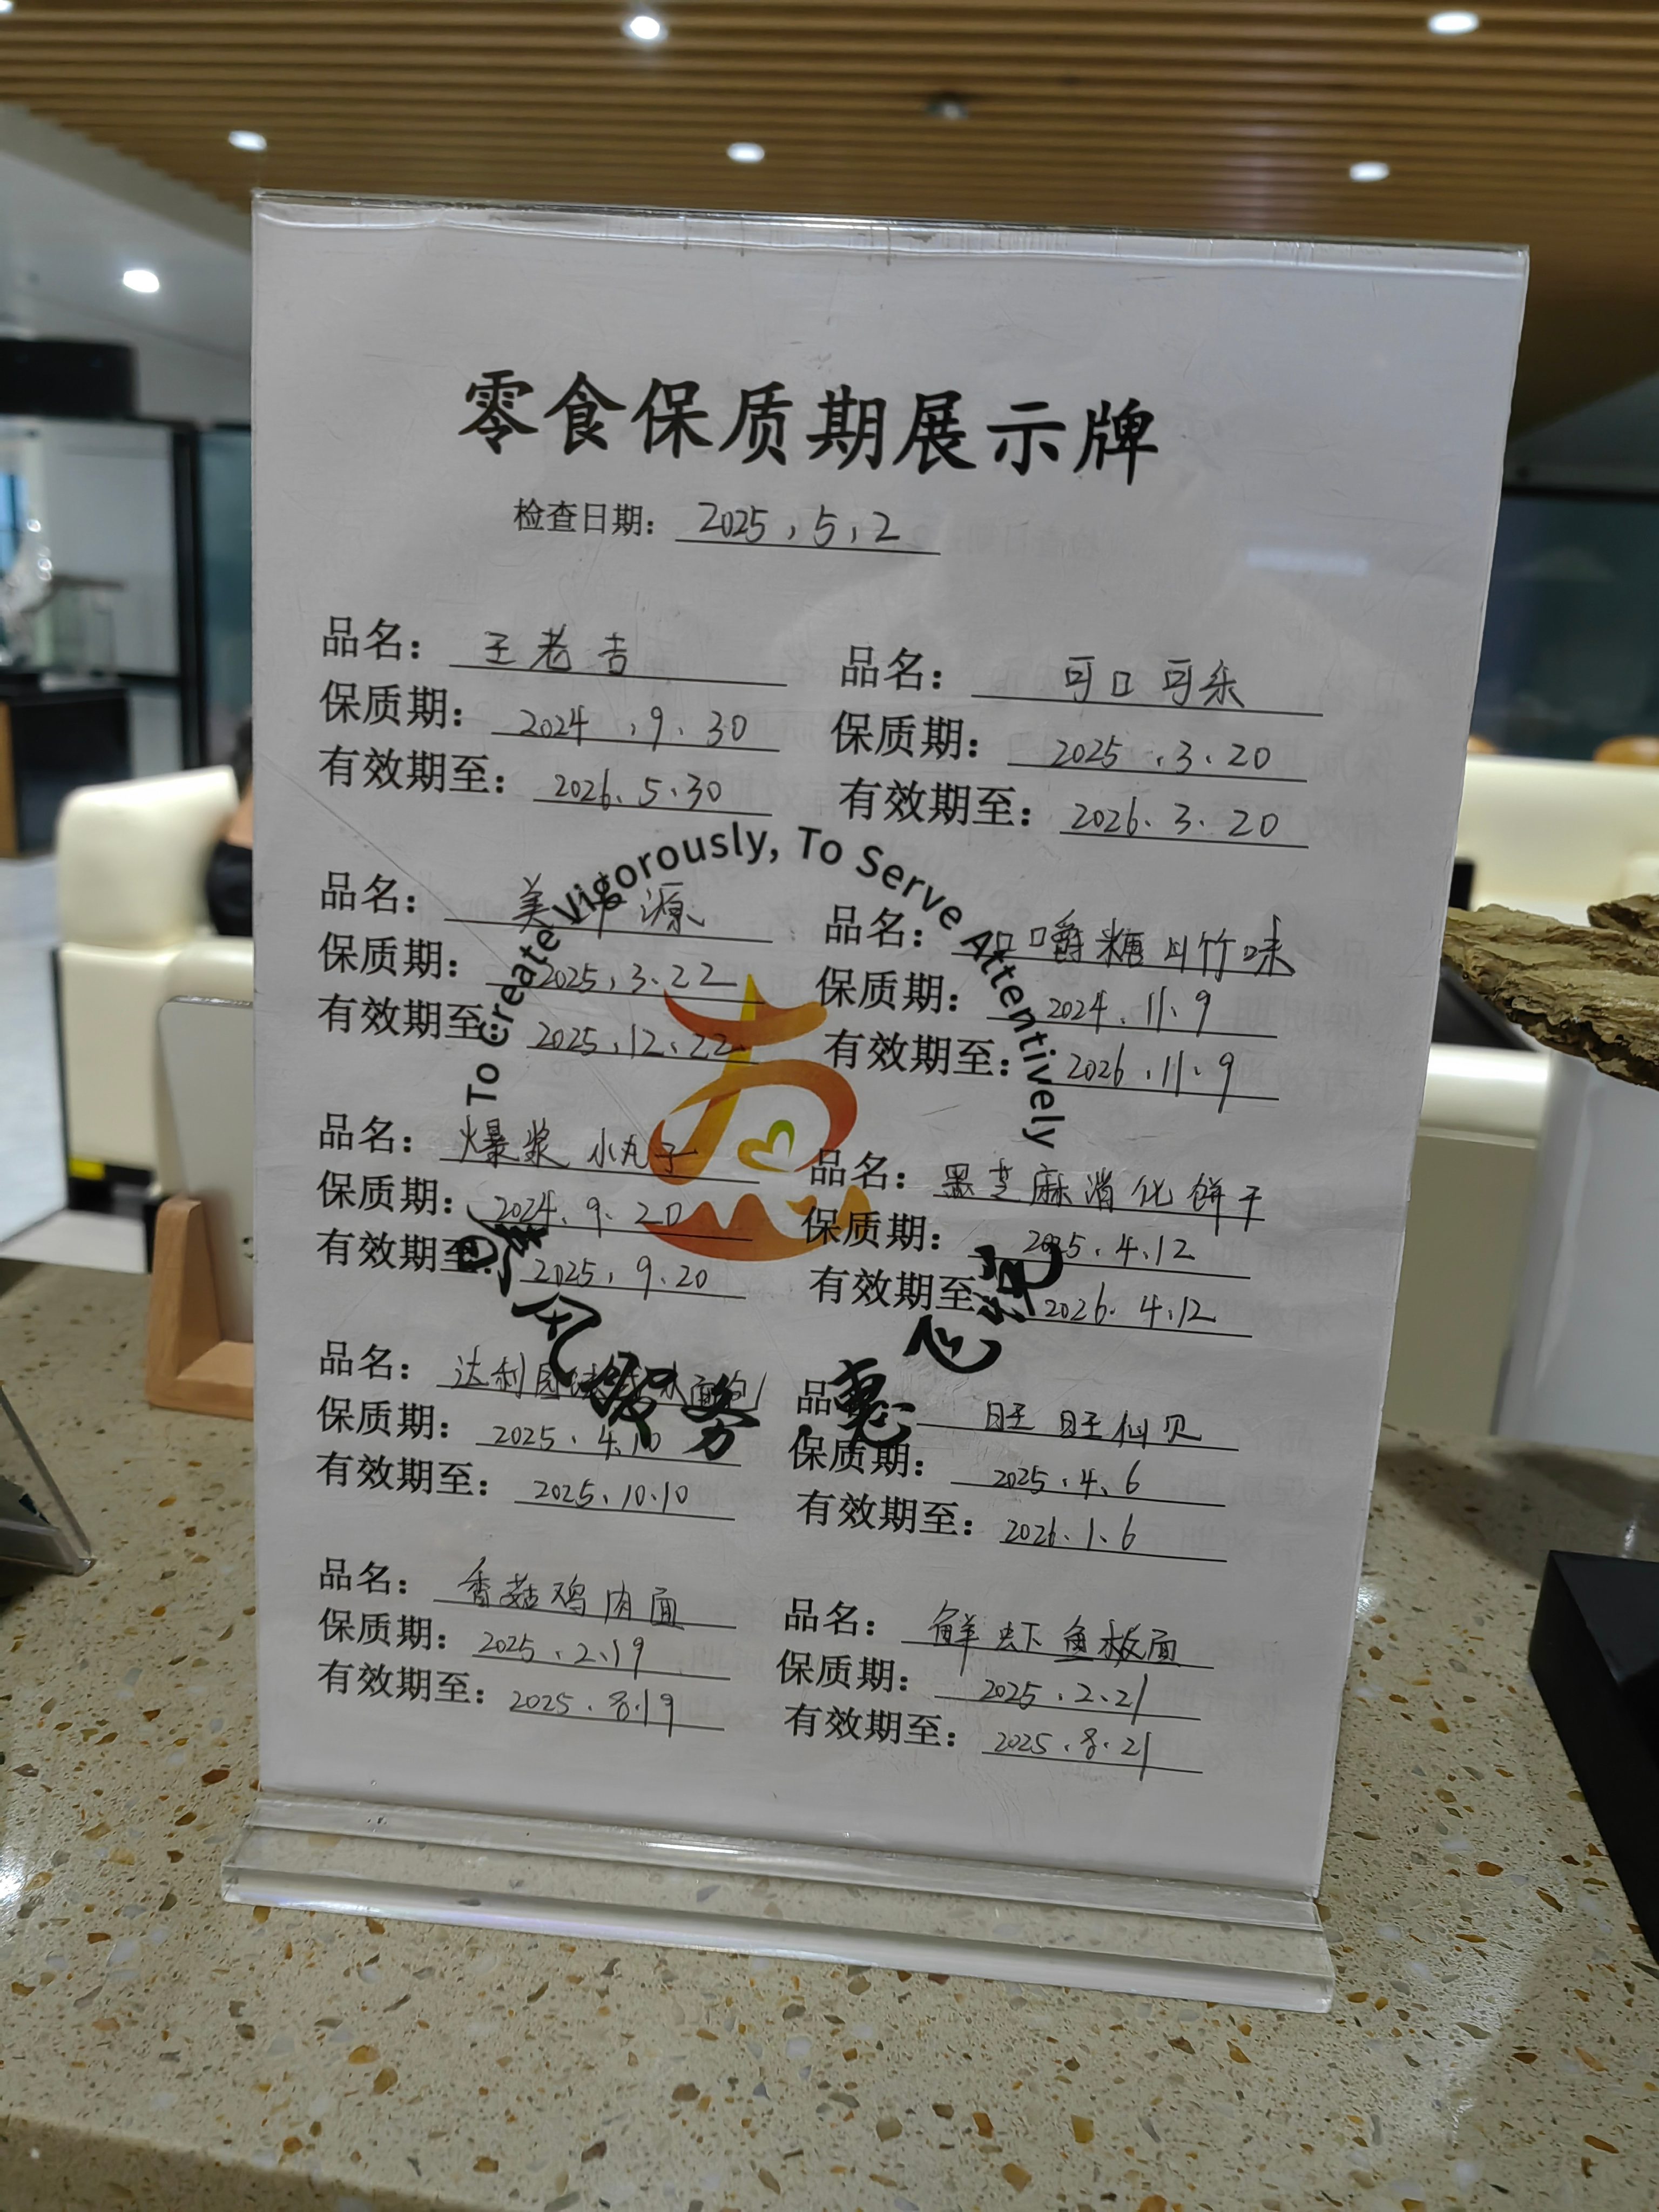 零食保质期展示牌
检查日期： 2025.5.2
品名： 王老吉
保质期： 2024.9.30
有效期至： 2026.5.30
品名： 可口可乐
保质期： 2025.3.20
有效期至： 2026.3.20
品名： 美 源
保质期： 2025.3.22
有效期至： 2025.12.22
品名： 口嚼糖 竹味
保质期： 2024.11.9
有效期至： 2026.11.9
品名： 爆浆小丸子
保质期： 2024.9.20
有效期至： 2025.9.20
品名： 黑芝麻消化饼干
保质期： 2025.4.12
有效期至： 2026.4.12
品名： 达利园 面包
保质期： 2025.4.10
有效期至： 2025.10.10
品名： 旺旺仙贝
保质期： 2025.4.6
有效期至： 2026.1.6
品名： 香菇鸡肉面
保质期： 2025.2.19
有效期至： 2025.8.19
品名： 鲜虾鱼板面
保质期： 2025.2.21
有效期至： 2025.8.21
To Create Vigorously, To Serve Attentively
服务 惠心